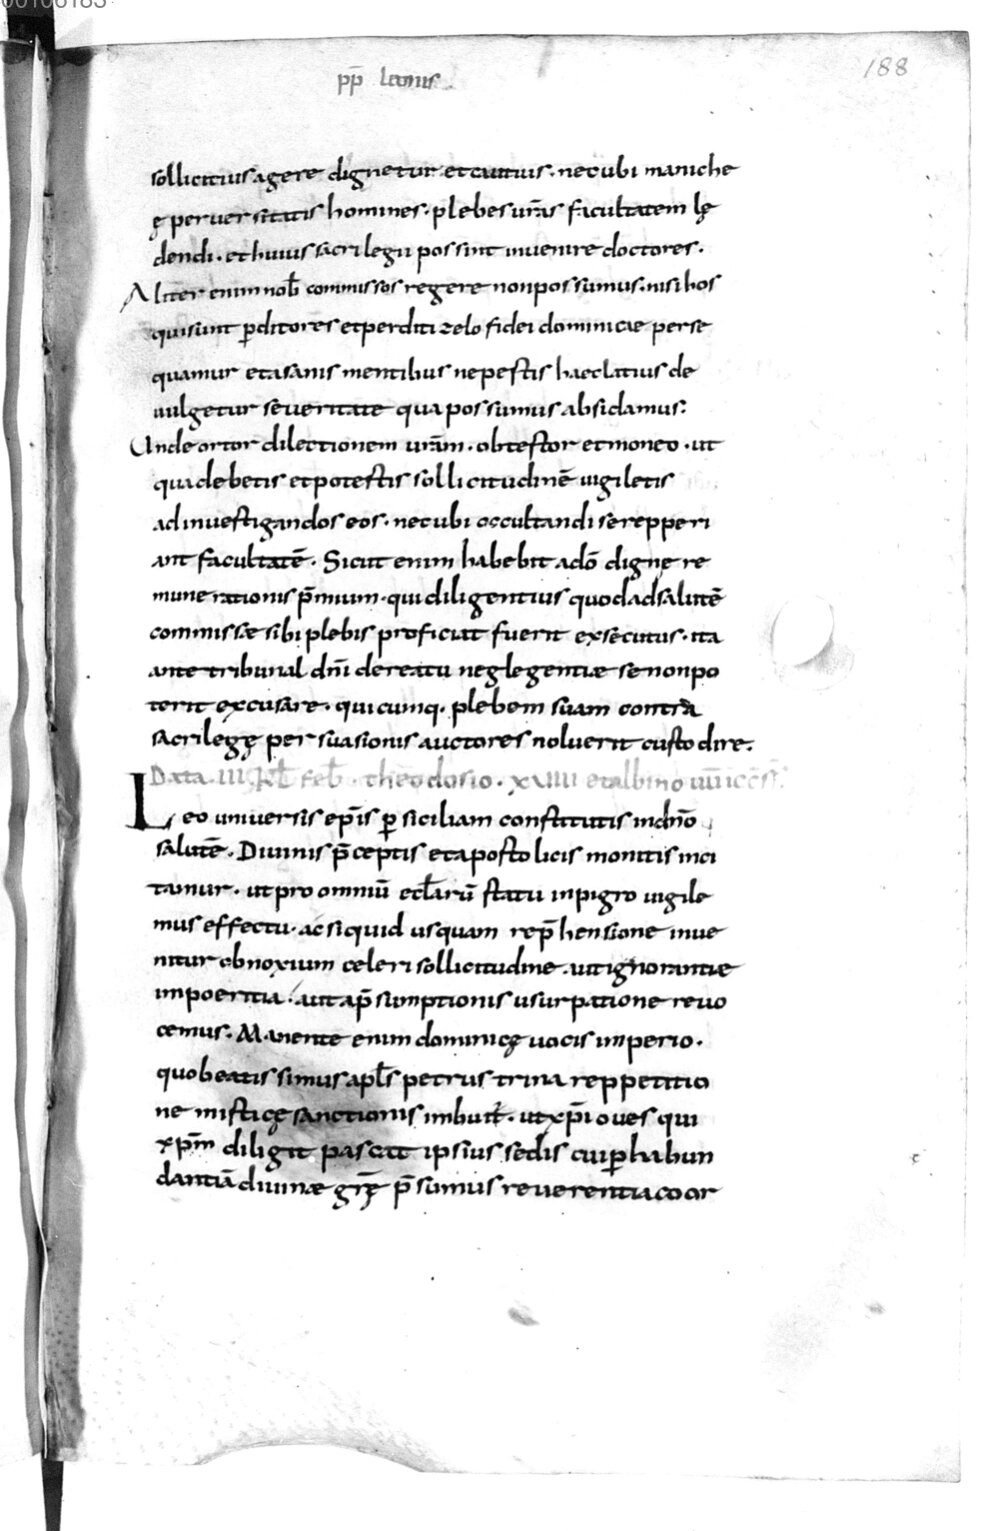 00106183
188
pp̄ leonis
sollicitius agere dignetur et cautius · necubi maniche
ę perversitatis homines · plebes ur̄as facultatem lę
dendi · et huius sacrilegii possint invenire doctores .
Aliter enim nob̄ commissos regere non possumus · nisi hos
qui sunt p̱ditores et perditi zelo fidei dominicae perse
quamur et a sanis mentibus ne pestis haec latius de
vulgetur severitate qua possumus absidamus :
Unde ortor dilectionem ur̄am · obtestor et moneo · ut
qua debetis et potestis sollicitudinē vigiletis
ad investigandos eos · necubi occultandi se repperi
ant facultatē . Sicut enim habebit a dō digne re
munerationis p̄mium · qui diligentius quod ad salutē
commissae sibi plebis proficiat fuerit exsecutus · ita
ante tribunal dn̄i de reatu neglegentiae se non po
terit excusare · quicumq · plebem suam contra
sacrilegę persuasionis auctores noluerit custodire .
Data . III . Kl̄ feb̄ · theodosio · xviiii et albino
Leo universis ep̄is p̱ siciliam constitutis in dn̄o
salutē . Divinis p̄ceptis et apostolicis monitis inci
tamur · ut pro omniū ecl̄arū statu inpigro vigile
mus effectu · ac si quid usquam rep̄hensione inve
nitur obnoxium celeri sollicitudine · aut ignorantiae
impoeritia · aut ap̄sumptionis usurpatione revo
cemus . Manente enim dominicę vocis imperio ·
quo beatissimus apl̄s petrus trina reppetitio
ne misticę sanctionis imbuit · ut xp̄i oves qui
xp̄m diligit pascat ipsius sedis cui p̱ habun
dantiā divinae gr̄ę p̄sumus reverentia coar